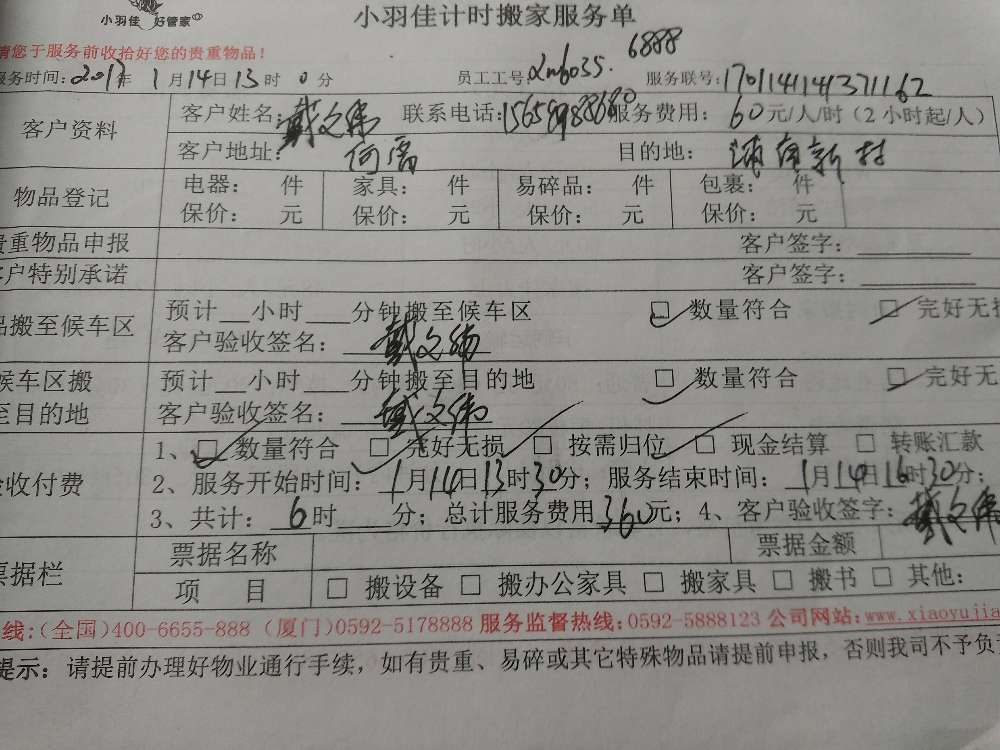 小羽佳 好管家
小羽佳计时搬家服务单
请您于服务前收拾好您的贵重物品！
服务时间：2017年 1月14日13时0分 员工工号： 6888 服务联号：170114141371162
客户资料
客户姓名：戴文伟 联系电话： 服务费用：60元/人/时（2小时起/人）
客户地址：何厝 目的地：新村
物品登记
电器： 件 家具： 件 易碎品： 件 包裹： 件
保价： 元 保价： 元 保价： 元 保价： 元
贵重物品申报 客户签字：
客户特别承诺 客户签字：
品搬至候车区
预计__小时___分钟搬至候车区 ☑ 数量符合 ☑ 完好无损
客户验收签名：戴文伟
候车区搬至目的地
预计__小时___分钟搬至目的地 ☑ 数量符合 ☑ 完好无
客户验收签名：戴文伟
验收付费
1、☑ 数量符合 ☑ 完好无损 ☑ 按需归位 ☑ 现金结算 □ 转账汇款
2、服务开始时间：1月14日13时30分；服务结束时间：1月14日16时30分；
3、共计：6时____分；总计服务费用360元；4、客户验收签字：戴文伟
票据栏
票据名称 票据金额
项 目 □ 搬设备 □ 搬办公家具 □ 搬家具 □ 搬书 □ 其他：
线：(全国)400-6655-888（厦门)0592-5178888 服务监督热线：0592-5888123 公司网站：www.xiaoyujia
提示：请提前办理好物业通行手续，如有贵重、易碎或其它特殊物品请提前申报，否则我司不予负